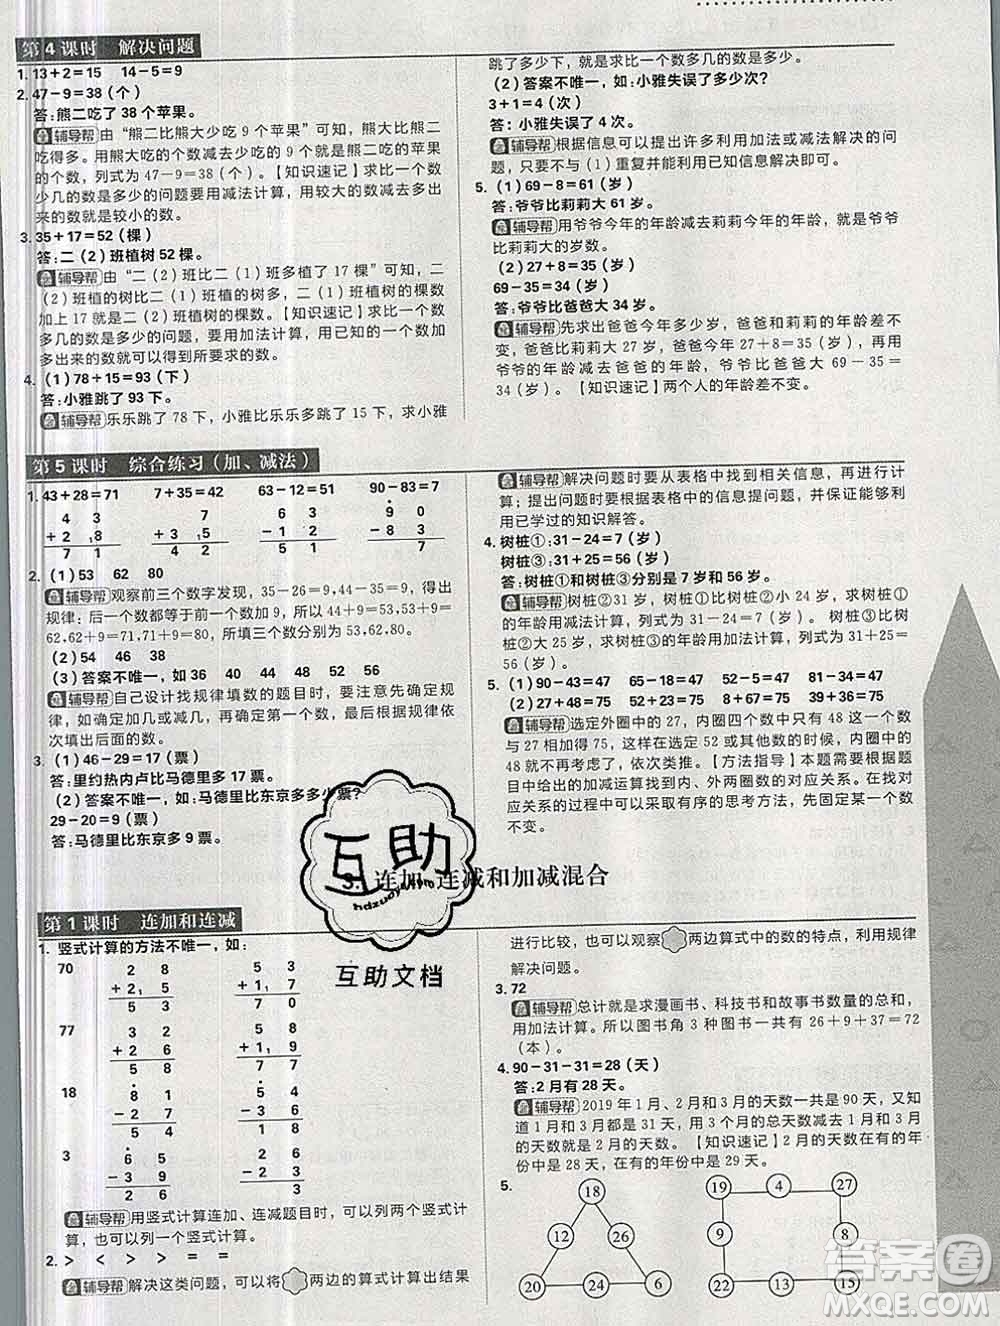 第 4 课时　解决问题
1. 13＋2＝15　14－5＝9
2. 47－9＝38（个）
答：熊二吃了 38 个苹果。
辅导帮 由“熊二比熊大少吃 9 个苹果”可知，熊大比熊二
吃得多。用熊大吃的个数减去少吃的 9 个就是熊二吃的苹果
的个数，列式为 47－9＝38（个）。【知识速记】求比一个数
少几的数是多少的问题要用减法计算，用较大的数减去多出
来的数就是较小的数。
3. 35＋17＝52（棵）
答：二（2）班植树 52 棵。
辅导帮 由“二（2）班比二（1）班多植了 17 棵”可知，二
（2）班植的树比二（1）班植的树多，用二（1）班植树的棵数
加上 17 就是二（2）班植树的棵数。【知识速记】求比一个数
多几的数是多少的问题，要用加法计算，用已知的一个数加
多出来的数就可以得到所要求的数。
4. （1）78＋15＝93（下）
答：小雅跳了 93 下。
辅导帮 乐乐跳了 78 下，小雅比乐乐多跳了 15 下，求小雅
跳了多少下，就是求比一个数多几的数是多少。
（2）答案不唯一，如：小雅失误了多少次？
3＋1＝4（次）
答：小雅失误了 4 次。
辅导帮 根据信息可以提出许多利用加法或减法解决的问
题，只要不与（1）重复并能利用已知信息解决即可。
5. （1）69－8＝61（岁）
答：爷爷比莉莉大 61 岁。
辅导帮 用爷爷今年的年龄减去莉莉今年的年龄，就是爷爷
比莉莉大的岁数。
（2）27＋8＝35（岁）
69－35＝34（岁）
答：爷爷比爸爸大 34 岁。
辅导帮 先求出爸爸今年多少岁，爸爸和莉莉的年龄差不
变，爸爸比莉莉大 27 岁，爸爸今年 27＋8＝35（岁），再用
爷爷的年龄减去爸爸的年龄，爷爷比爸爸大 69－35＝
34（岁）。【知识速记】两个人的年龄差不变。
第 5 课时　综合练习（加、减法）
1. 43＋28＝71　7＋35＝42　63－12＝51　90－83＝7
4 3　7　6 3　9 0
＋ 2 8　＋ 3 5　－ 1 2　－ 8 3
7 1　4 2　5 1　7
2. （1）53　62　80
辅导帮 观察前三个数字发现，35－26＝9，44－35＝9，得出
规律：后一个数都等于前一个数加 9，所以 44＋9＝53，53＋9＝
62，62＋9＝71，71＋9＝80，所填三个数分别为 53，62，80。
（2）54　46
（3）答案不唯一，如 36　40　44　48　52　56
辅导帮 自己设计找规律填数的题目时，要注意先确定规
律，如确定加几或减几，再确定第一个数，最后根据规律依
次填出后面的数。
3. （1）46－29＝17（票）
答：里约热内卢比马德里多 17 票。
（2）答案不唯一，如：马德里比东京多多少票？
29－20＝9（票）
答：马德里比东京多 9 票。
辅导帮 解决问题时要从表格中找到相关信息，再进行计
算；提出问题时要根据表格中的信息提问题，并保证能够利
用已学过的知识解答。
4. 树桩①：31－24＝7（岁）
树桩③：31＋25＝56（岁）
答：树桩①和树桩③分别是 7 岁和 56 岁。
辅导帮 树桩②31 岁，树桩①比树桩②小 24 岁，求树桩①
的年龄用减法计算，列式为 31－24＝7（岁）；树桩③比树
桩②大 25 岁，求树桩③的年龄用加法计算，列式为 31＋25＝
56（岁）。
5. （1）90－43＝47　65－18＝47　52－5＝47　81－34＝47
（2）27＋48＝75　52＋23＝75　8＋67＝75　39＋36＝75
辅导帮 选定外圈中的 27，内圈四个数中只有 48 这一个数
与 27 相加得 75，这样在选定 52 或其他数的时候，内圈中的
48 就不再考虑了，依次类推。【方法指导】本题需要根据题
目中给出的加减运算找到内、外两圈数的对应关系。在找对
应关系的过程中可以采取有序的思考方法，先固定某一个数
不变。
3. 连加、连减和加减混合
互助
hdzuoye.com
互助文档
第 1 课时　连加和连减
1. 竖式计算的方法不唯一，如：
70　2 8　5 3
＋ 2 5　＋ 1 7
5 3　7 0
77　3 2　5 8
＋ 2 6　＋ 1 9
5 8　7 7
18　8 1　5 4
－ 2 7　－ 3 6
5 4　1 8
3　6 5　2 6
－ 3 9　－ 2 3
2 6　3
辅导帮 用竖式计算连加、连减题目时，可以列两个竖式计
算，也可以列一个竖式计算。
2. ＞　＜　＞　＞　＝　＝
辅导帮 解决这类问题，可以将 两边的算式计算出结果
进行比较，也可以观察 两边算式中的数的特点，利用规律
解决问题。
3. 72
辅导帮 总计就是求漫画书、科技书和故事书数量的总和，
用加法计算。所以图书角 3 种图书一共有 26＋9＋37＝72
（本）。
4. 90－31－31＝28（天）
答：2 月有 28 天。
辅导帮 2019 年 1 月、2 月和 3 月的天数一共是 90 天，又知
道 1 月和 3 月都是 31 天，用 3 个月的总天数减去 1 月和 3 月
的天数就是 2 月的天数。【知识速记】2 月的天数在有的年
份中是 28 天，在有的年份中是 29 天。
5.
18　19　4　27
6　12　22　8
20　24　6　9　13　15
答案圈
MXQE.COM